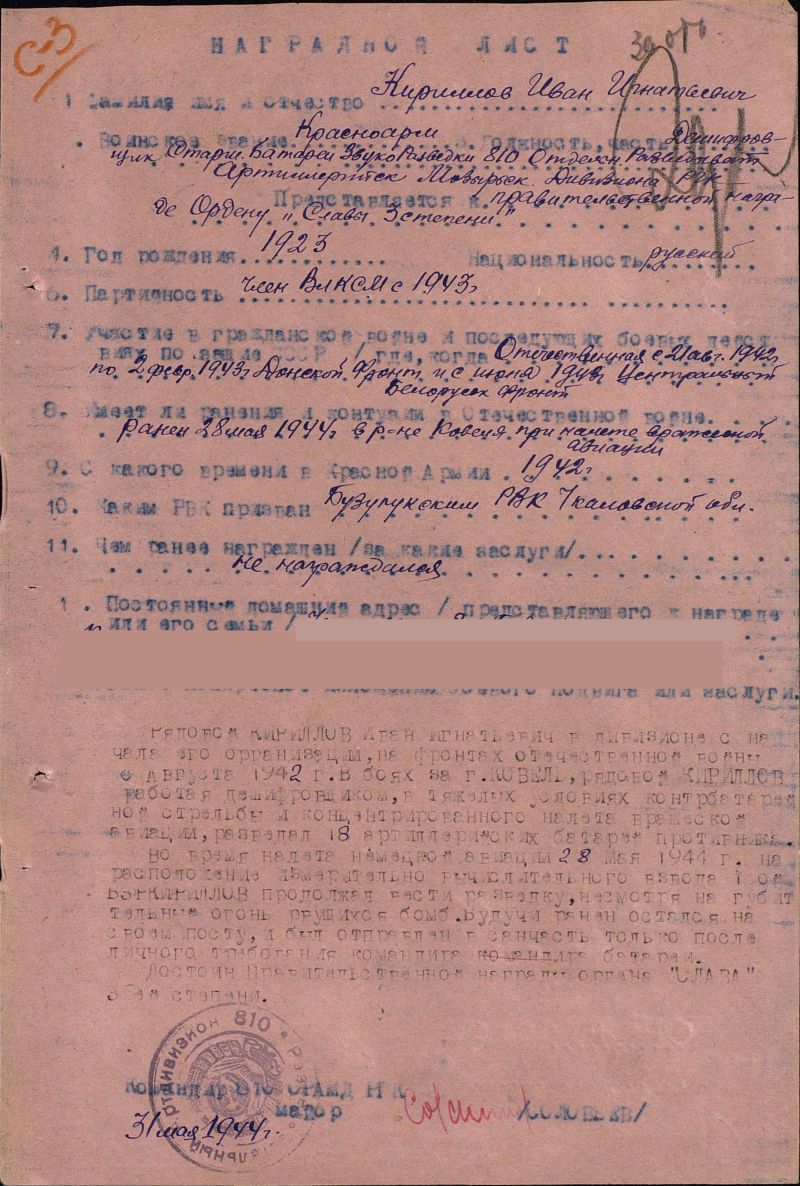 С-3
НАГРАДНОЙ ЛИСТ
Кириллов Иван Игнатьевич
1 Фамилия имя и отчество
Воинское звание Красноарм 3. Должность, часть Дешифров-
щик Старш. Батареи Звуко Разведки 810 Отделен. Разведыват
Артиллерийск РГК Дивизиона
Представляется к правительственной награ-
де Ордену „Славы 3 степени"
4. Год рождения 1923 Национальность русский
6. Партийность член ВЛКСМ с 1943г
7. Участие в гражданской войне и последующих боевых дейст
виях по защите СССР / где, когда Отечественная с 21 авг. 1942
по 2 февр. 1943г Донской Фронт и с июня 1943г Центральный
Белорусск Фронт
8. Имеет ли ранения и контузии в Отечественной войне.
ранен 28 мая 1944г в р-не Ковеля при налете вражеской
авиации
9. С какого времени в Красной Армии 1942г
10. Каким РВК призван Бузулукским РВК Чкаловской обл.
11. Чем ранее награжден /за какие заслуги/
не награждался
1 . Постоянный домашний адрес / представляющего к награде
или его семьи /
боевого подвига или заслуги.
Рядовой КИРИЛЛОВ Иван Игнатьевич в дивизионе с на
чала его организации, на фронтах отечественной войны
с Августа 1942 г. В боях за г. КОВЕЛЬ, рядовой КИРИЛЛОВ
работая дешифровщиком, в тяжелых условиях контрбатарей
ной стрельбы и концентрированного налета вражеской
авиации, разведал 18 артиллерийских батарей противника.
Во время налета немецкой авиации 28 Мая 1944 г. на
расположение измерительно вычислительного взвода 1 ой
БЗР КИРИЛЛОВ продолжал вести разведку, несмотря на губит
тельный огонь рвущихся бомб. Будучи ранен остался на
своем посту, и был отправлен в санчасть только после
личного требования командира командира батареи.
Достоин Правительственной награды ордена "СЛАВА"
3 ей степени.
Командир 810 ОРАМД РГК
майор /СОЛОВЬЕВ/
31 мая 1944г.